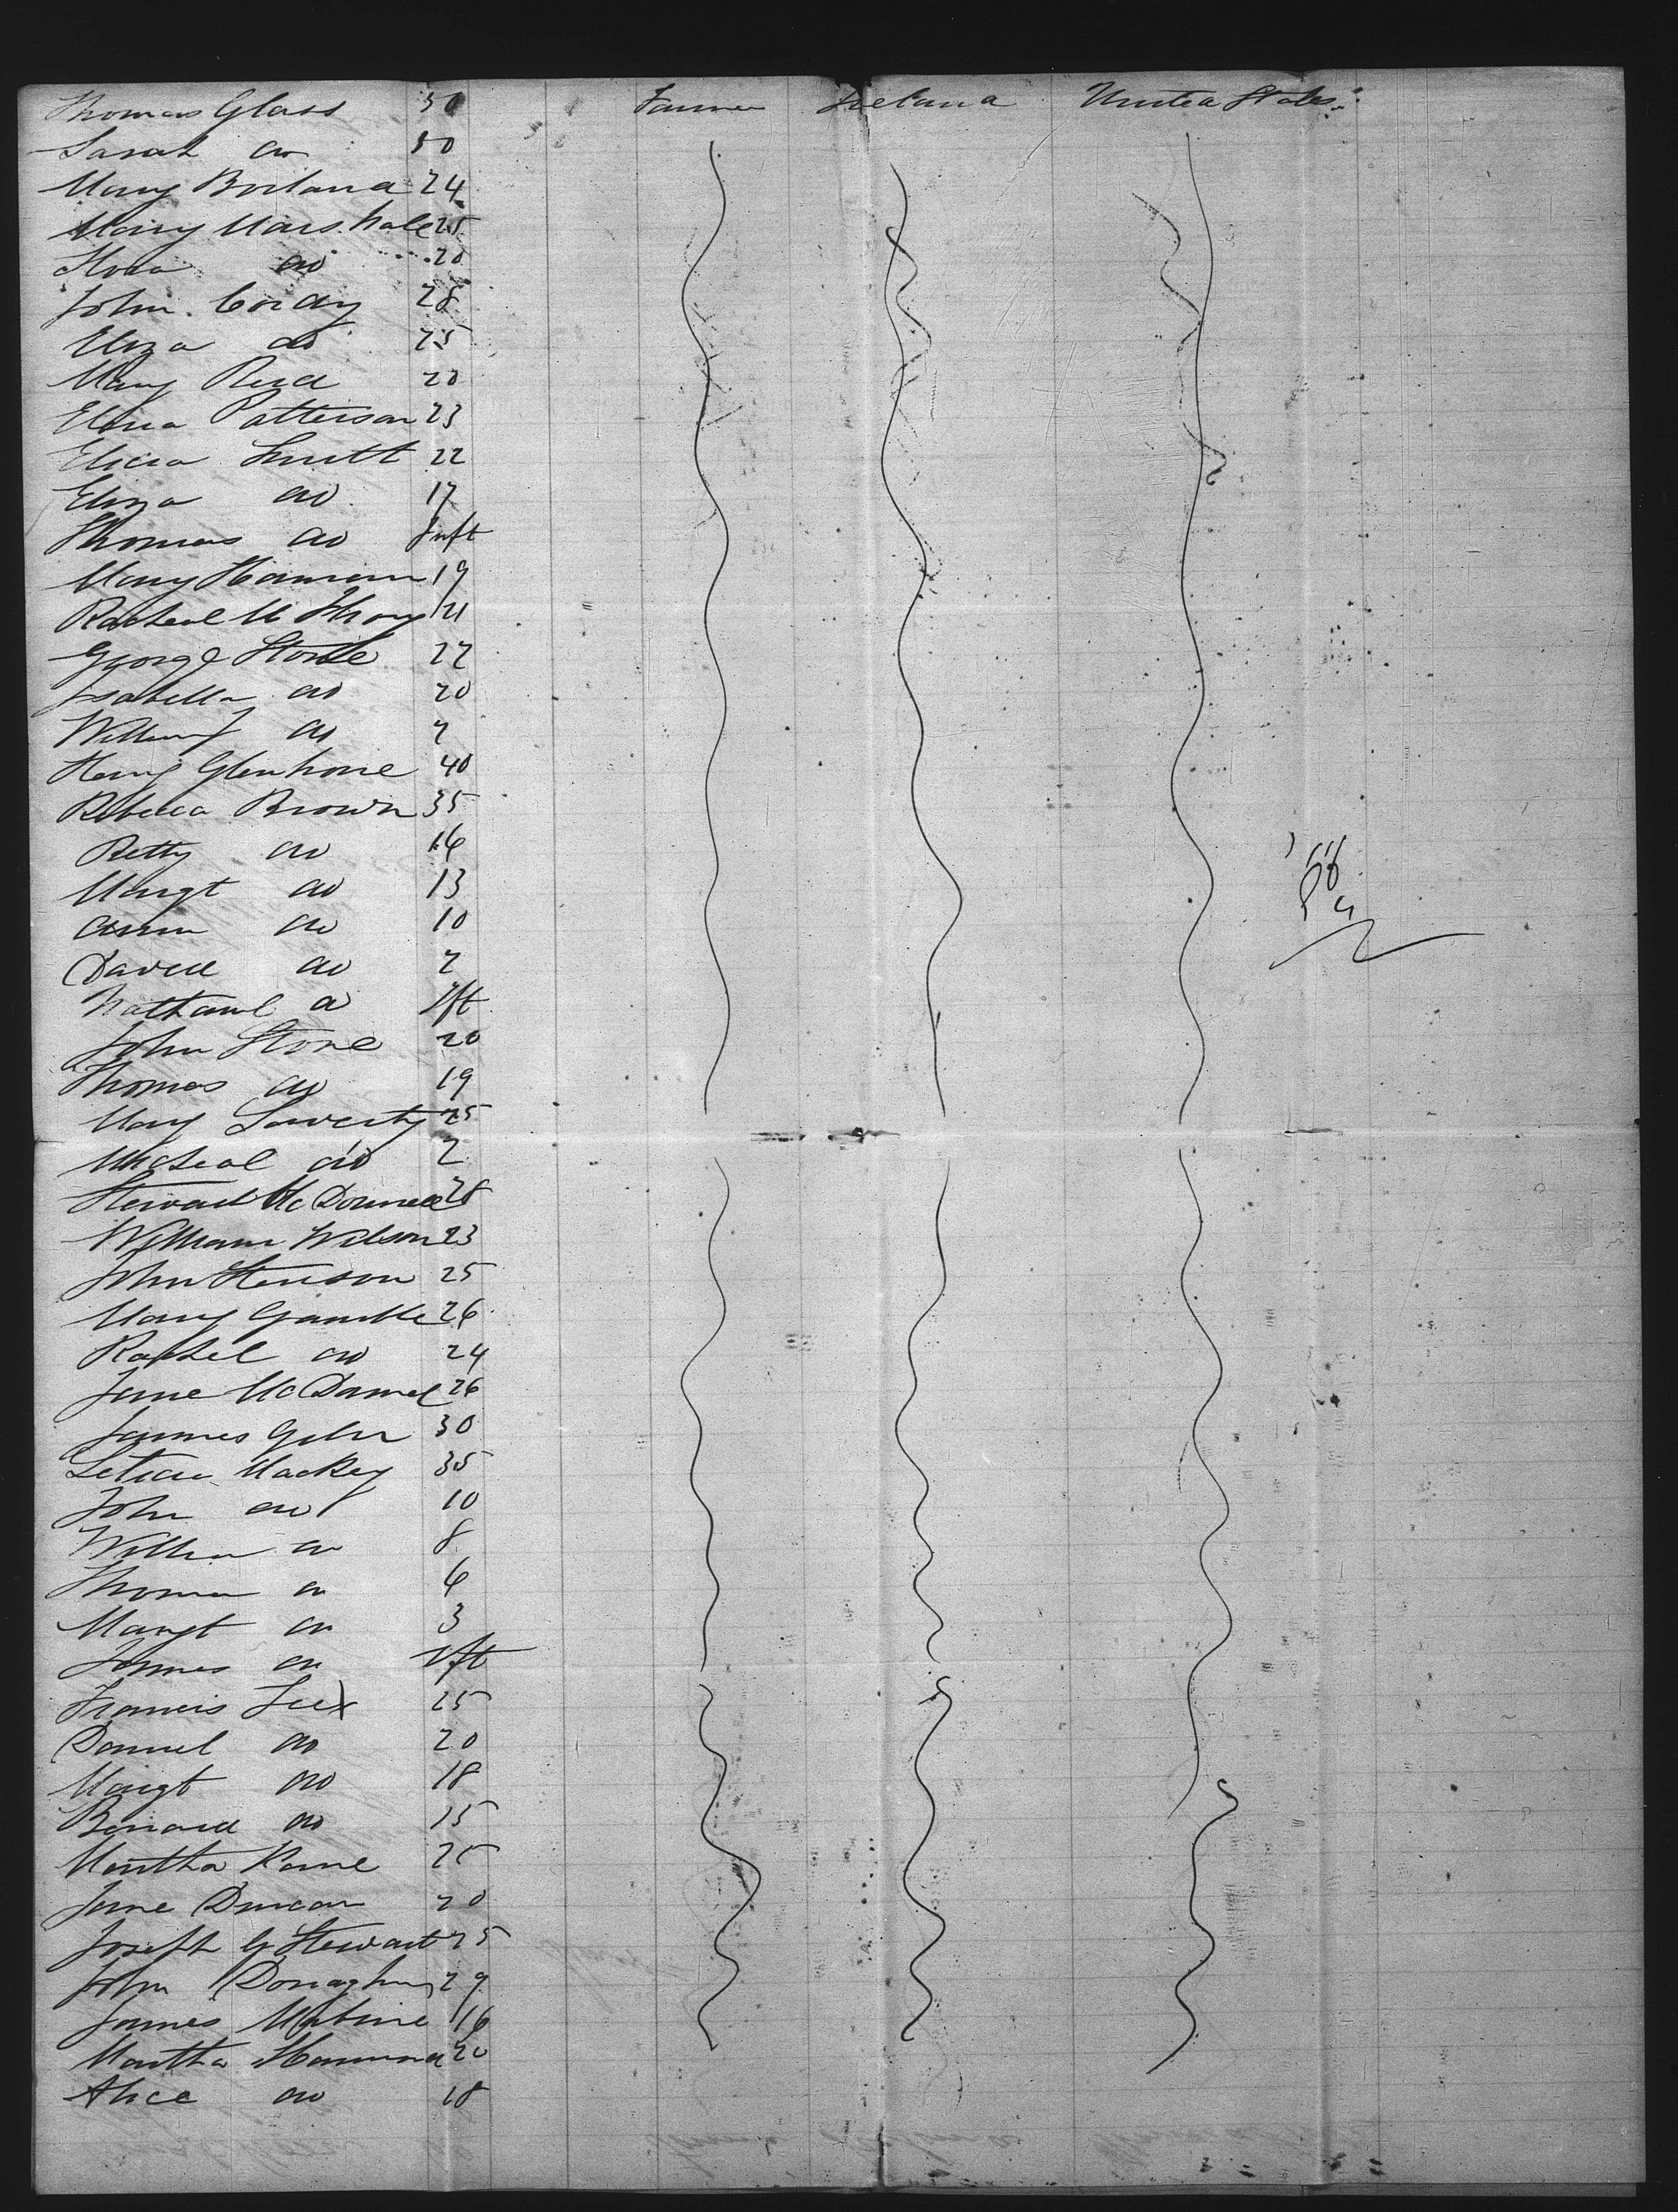 Thomas Glass 50 Farmer Ireland United States
Sarah do 50
Mary Borland 24
Mary Marshale 25
do 20
John Cordy 28
Eliza do 25
Mary Reid 20
Patterson 23
Smitt 22
Eliza do 17
Thomas do Inft
Mary 19
Racheal Mc 21
George Stone 22
Isabella do 20
William J do
Glenhone 40
Rebecca Brown 35
Betty do 16
Margt do 13
Ann do 10
David do
Nathanl do Ift
John Stone 20
Thomas do 19
Mary Laverty 25
Micheal do 2
Steward McDonnell 28
William Wilson 23
John Stevison 25
Mary Gamble 26
Rachel do 24
Jane McDaniel 26
James 30
Leticia Mackey 35
John do 10
William do 8
Thomas do 6
Margt do 3
James do Ift
Francis 25
Daniel do 20
Margt do 18
Bernard do 15
Martha Kane 25
Jane Duncan 20
Joseph G Stewart 25
John Donaghy 29
James 16
Martha Hammond 20
Alice do 18